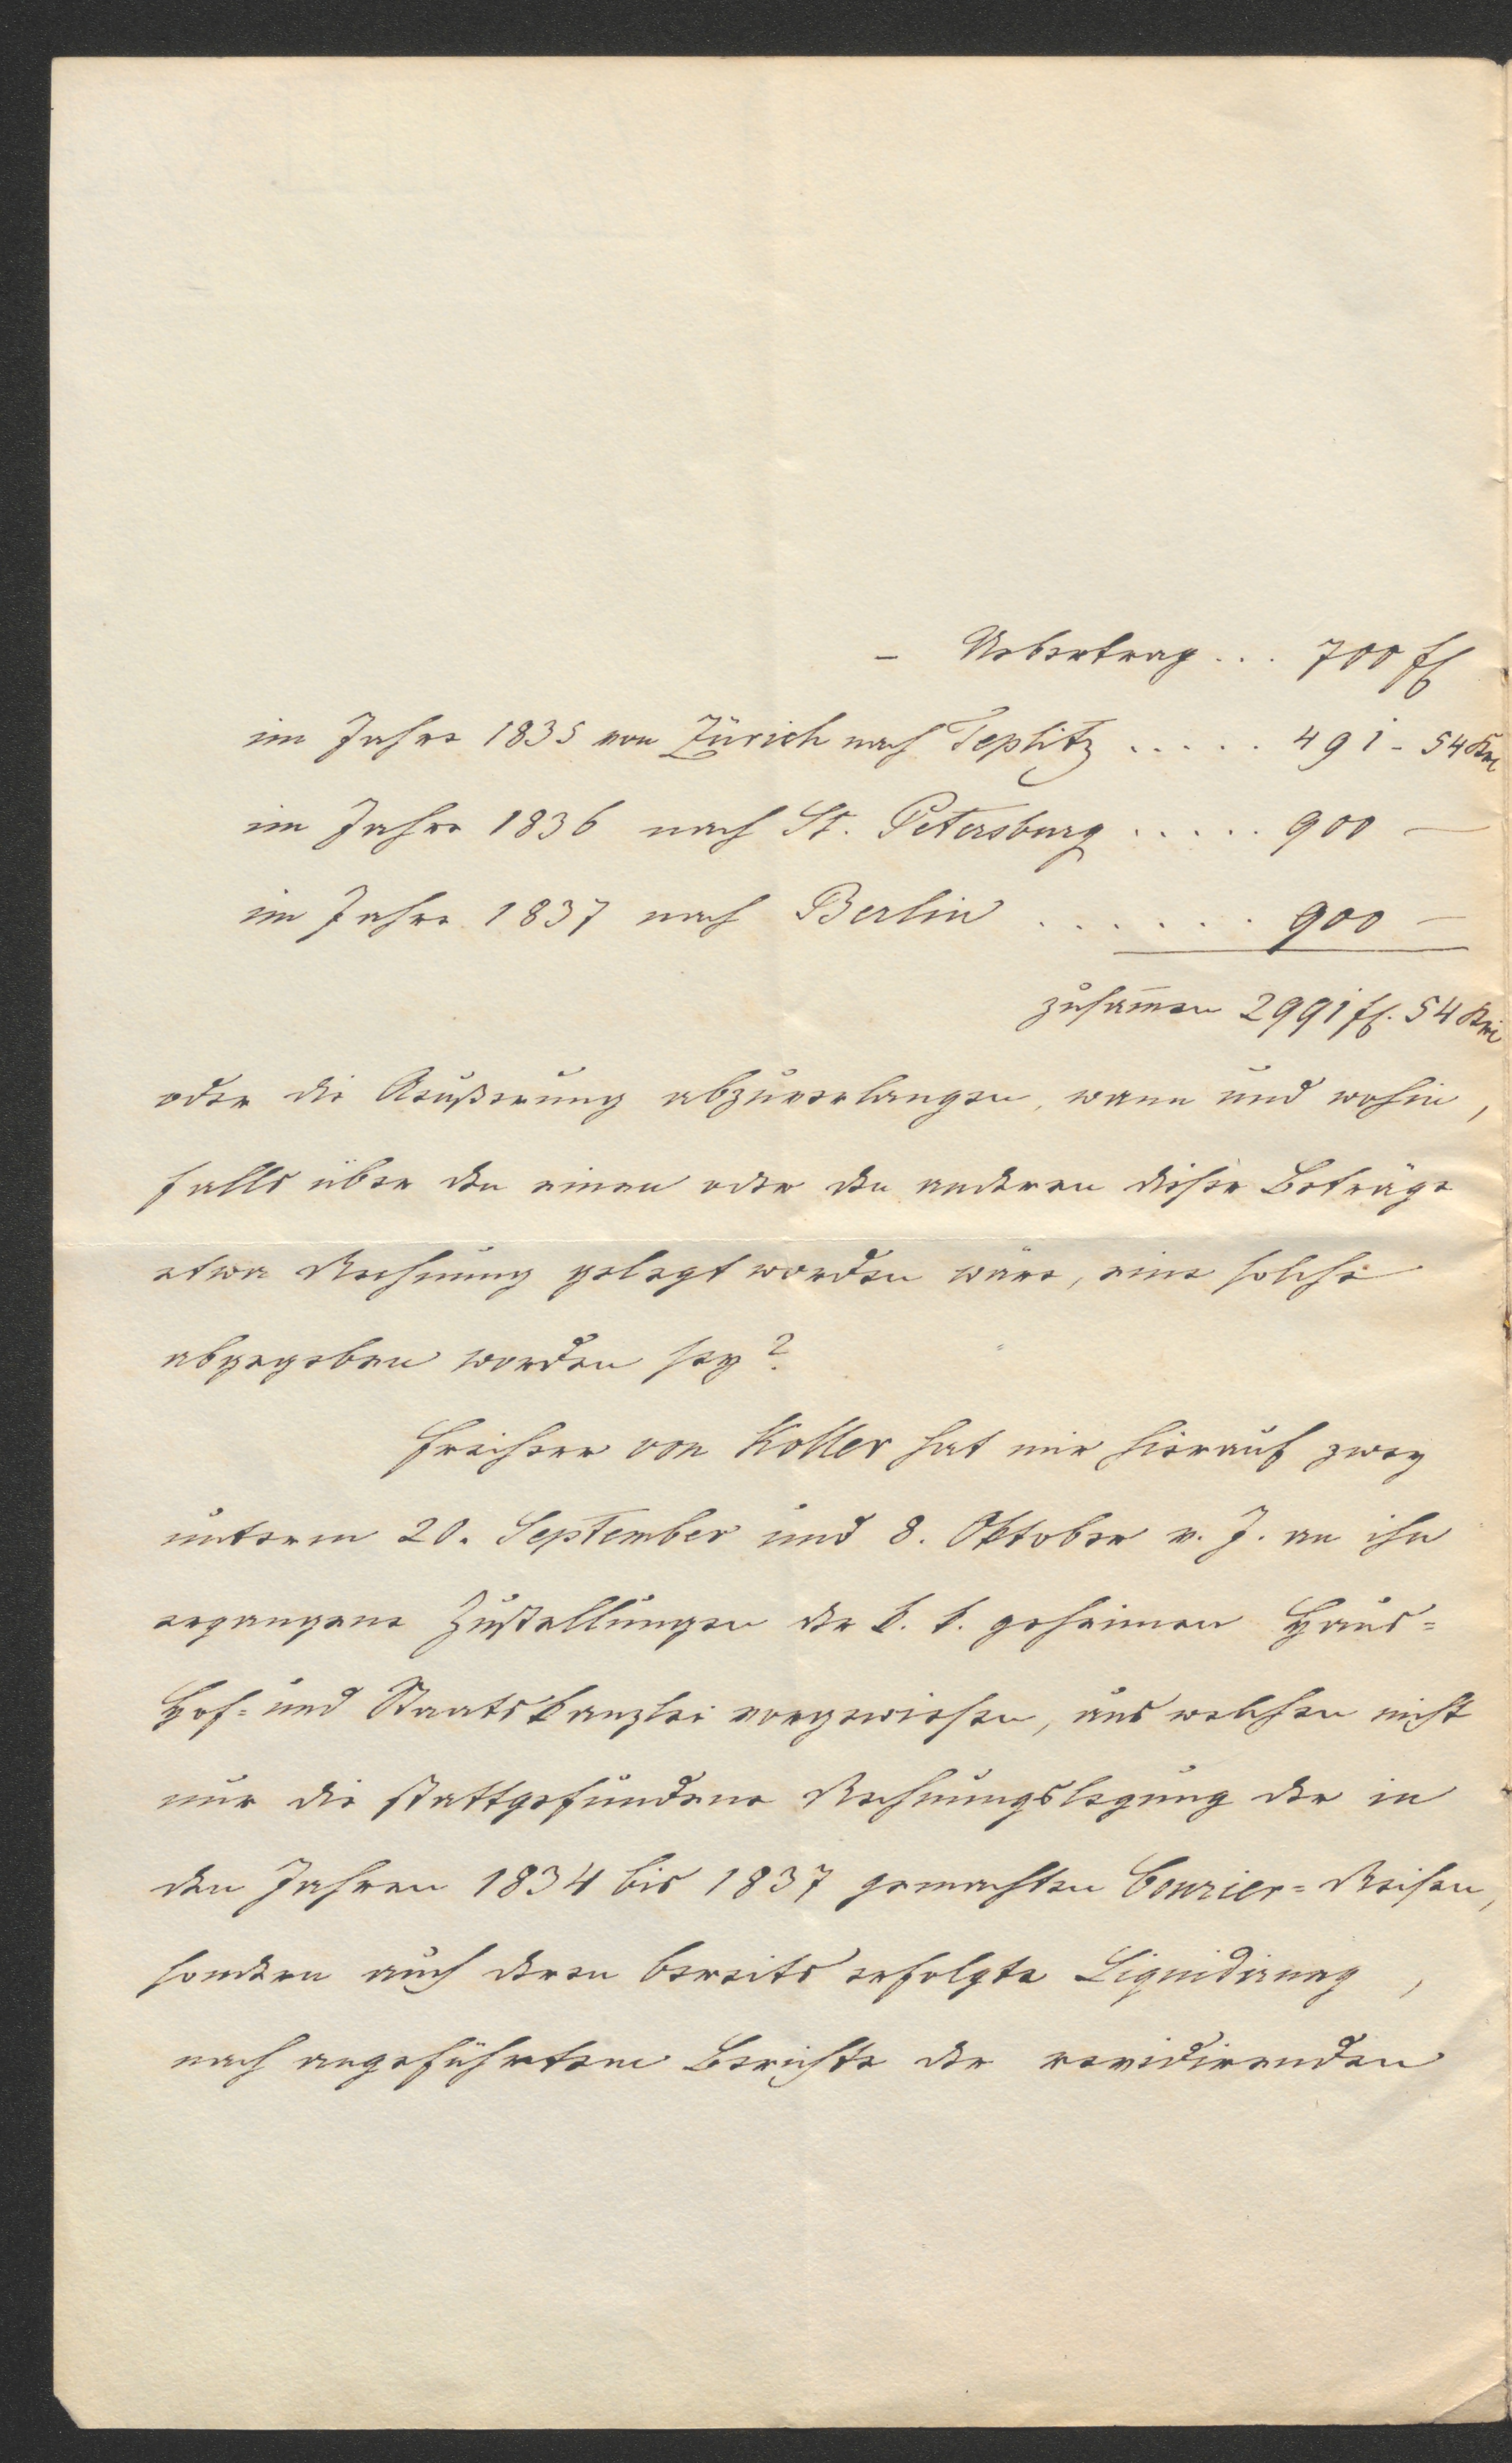 - Uebertrag ... 700 fl
im Jahre 1835 von Zürich nach Teplitz ..... 491 - 54 Kr
im Jahre 1836 nach St. Petersburg ..... 900 —
im Jahre 1837 nach Berlin ...... 900 —
zusam̅en 2991 fl. 54 Kr
oder die Aeußerung abzuverlangen, wann und wohin,
falls über den einen oder den anderen dieser Beträge
etwa Rechnung gelegt worden wäre, eine solche
abgegeben worden sey?
Freiherr von Koller hat mir hierauf zwey
unterm 20. September und 8. Oktober v. J. an ihn
ergangene Zustellungen der k. k. geheimen Haus=
Hof= und Staatskanzlei vorgewiesen, aus welchen nicht
nur die stattgefundene Rechnungslegung der in
den Jahren 1834 bis 1837 gemachten Courier=Reisen,
sondern auch deren bereits erfolgte Liquidirung,
nach angeführtem Berichte der revidirenden